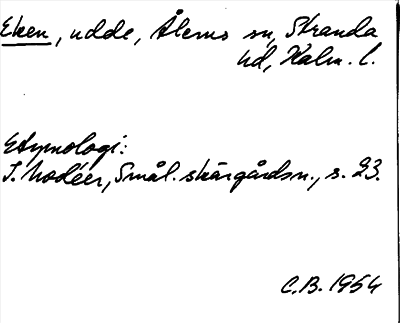 Eken, udde, Ålems sn, Stranda
hd, Kalm. l.
Etymologi:
I. Modéer, Smål. skärgårdsn., s. 23.
C.B. 1954